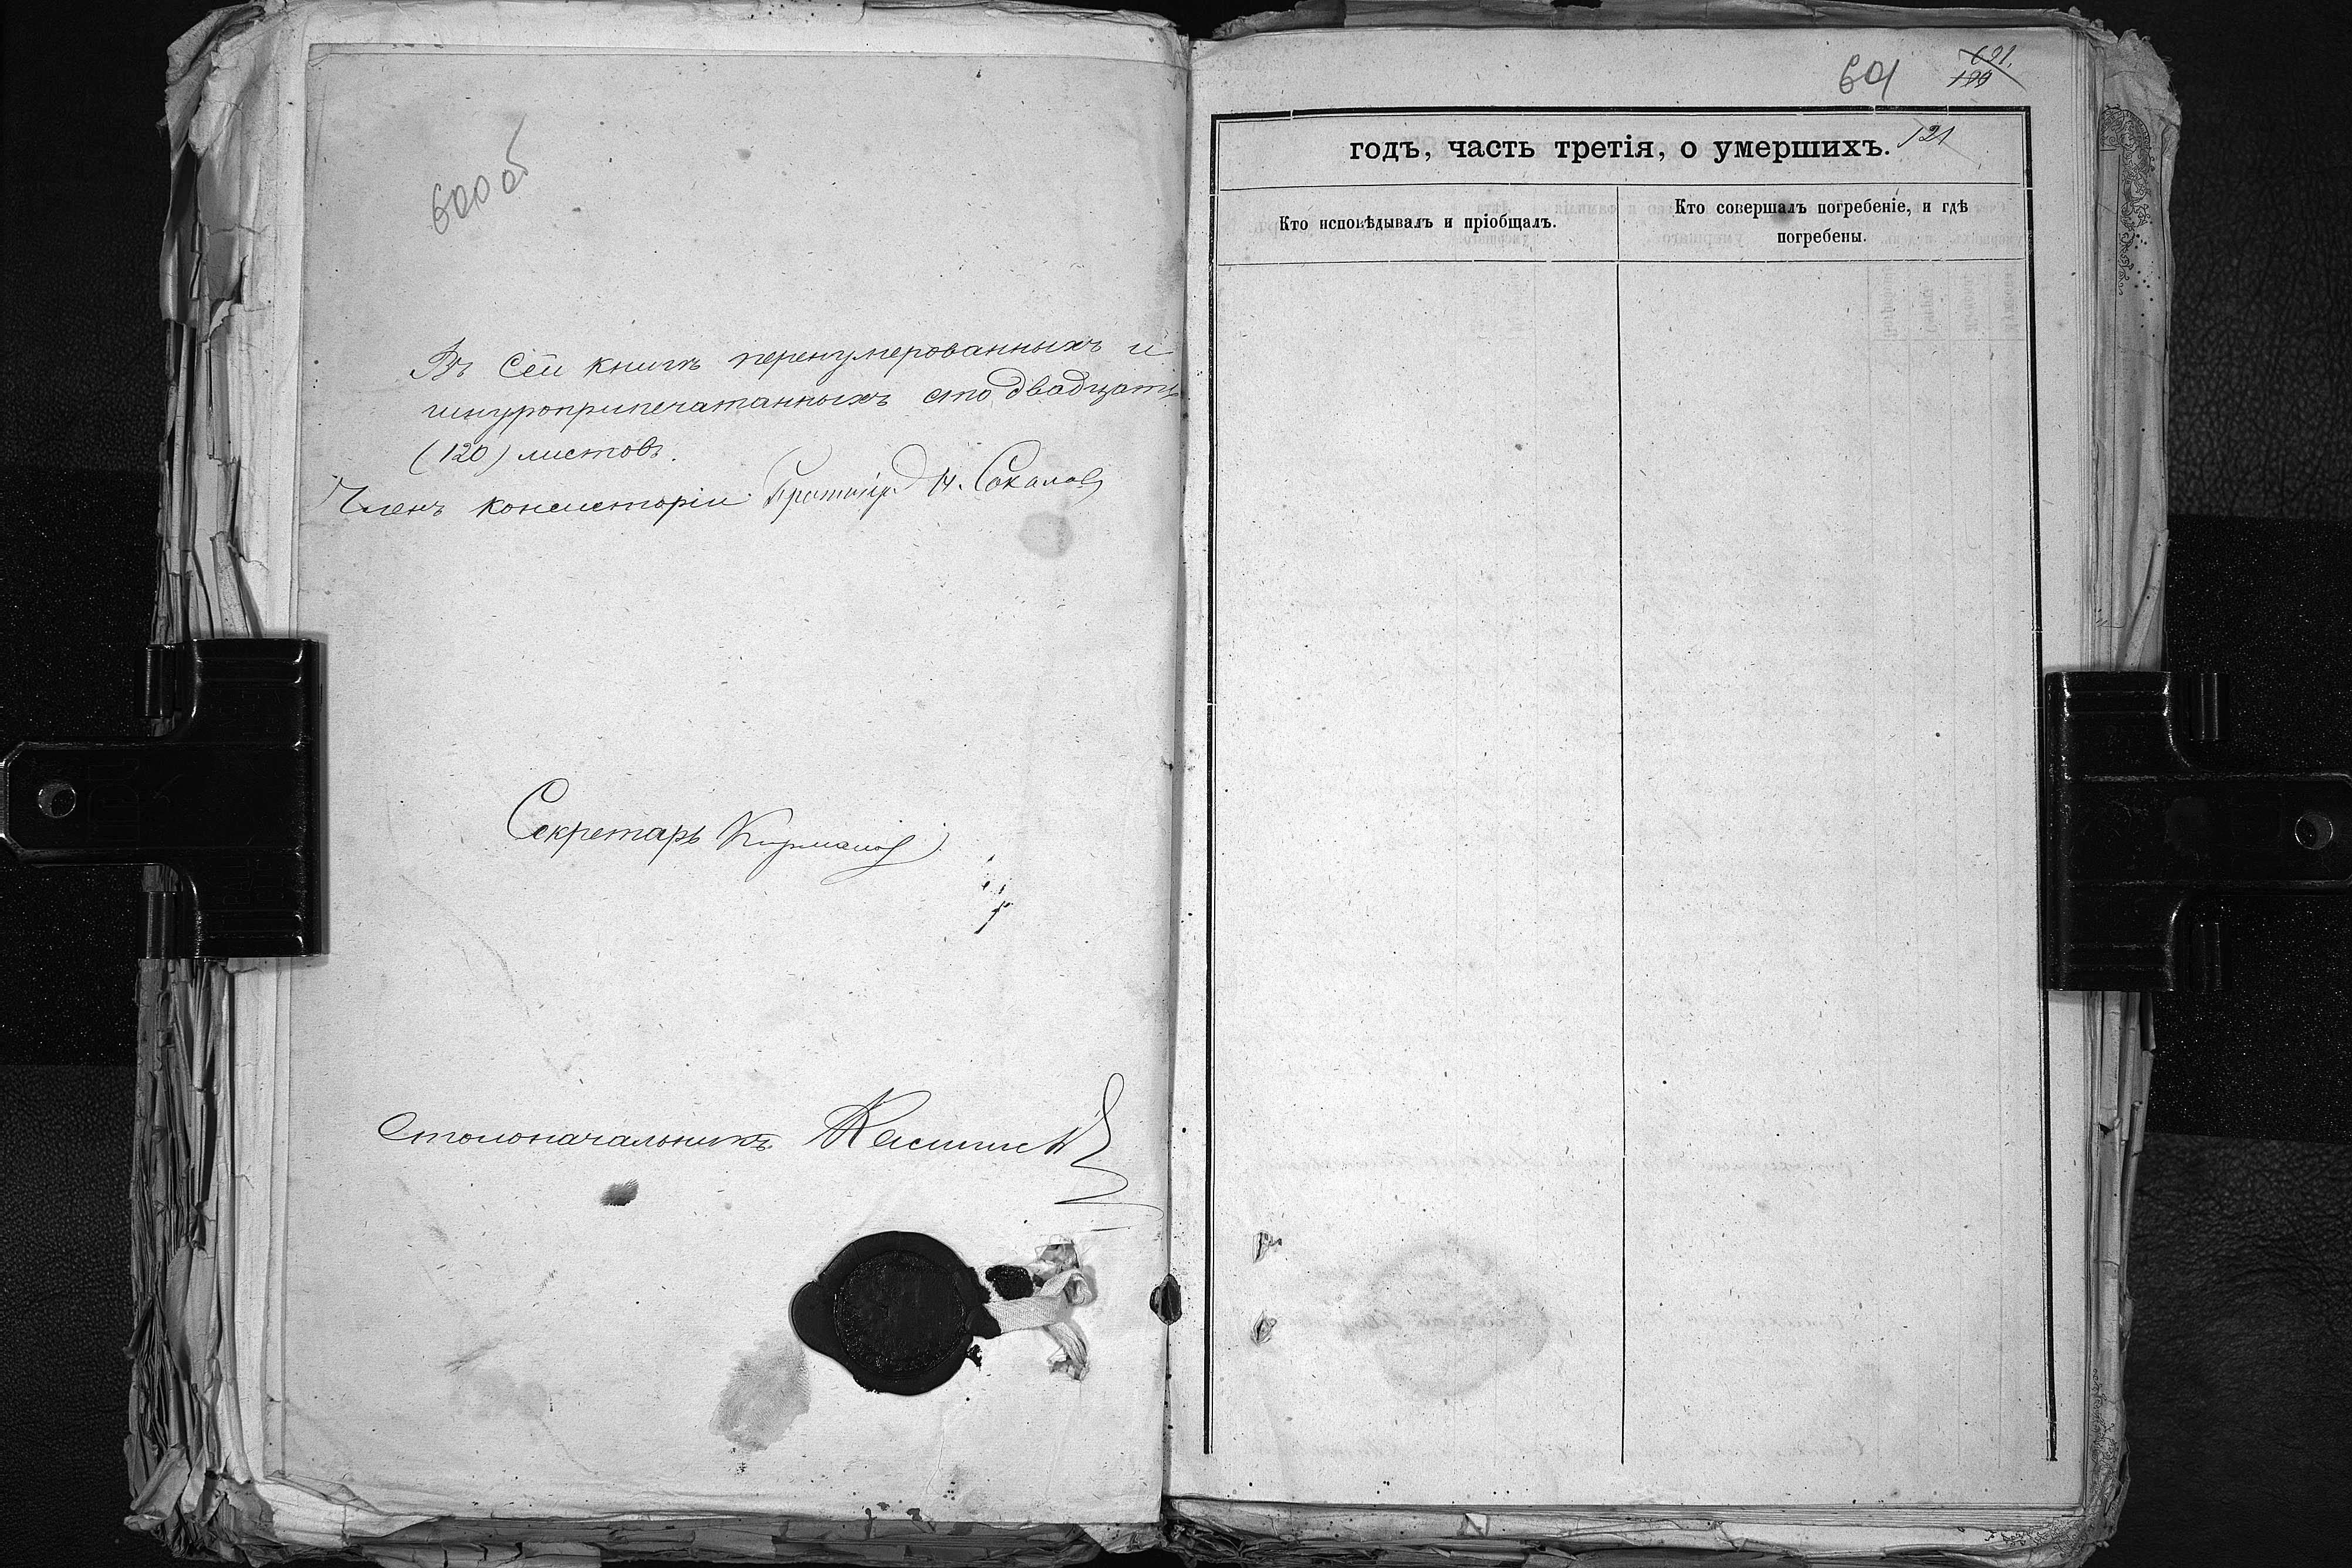 600 об
Въ сей книгѣ перенумерованныхъ и
шнуроприпечатанныхъ сто двадцать
(120) листовъ.
Членъ консисторіи Н. Соколов
Секретарь
Столоначальникъ
601
691.
121
годъ, часть третія, о умершихъ.
Кто исповѣдывалъ и пріобщалъ.
Кто совершалъ погребеніе, и гдѣ
погребены.